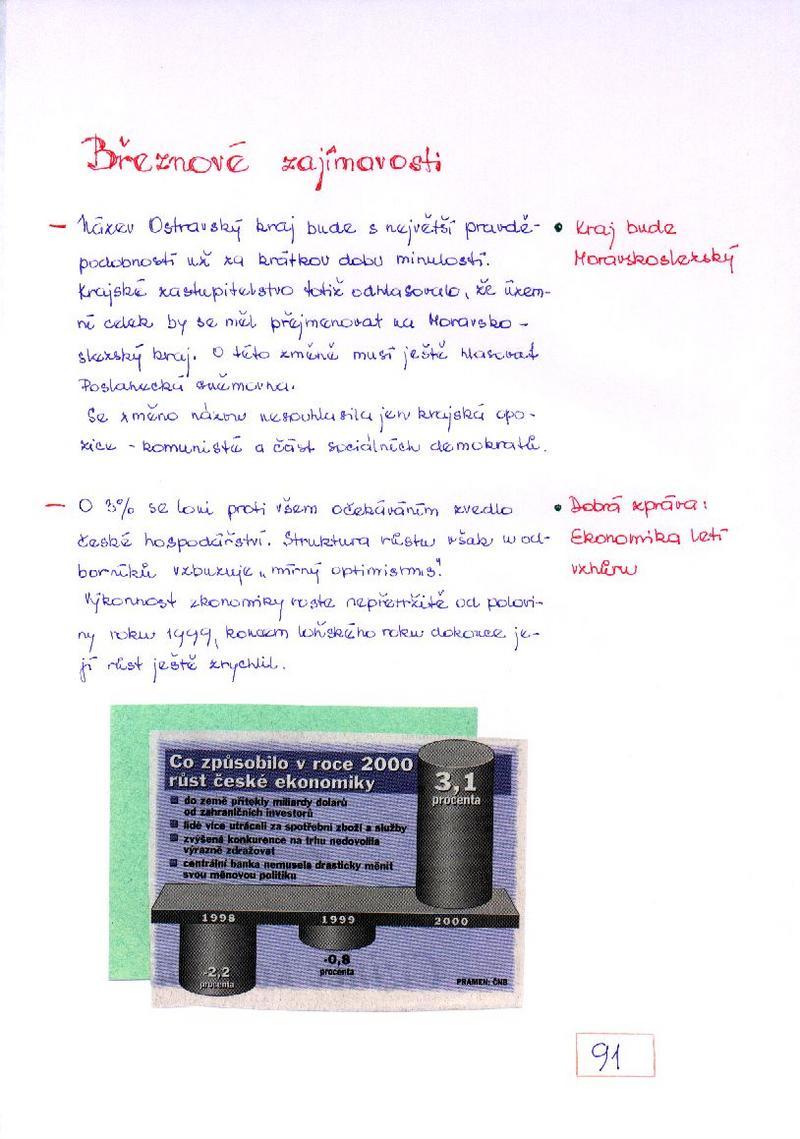 Březnové zajímavosti
– Název Ostravský kraj bude s největší pravdě-
podobností už za krátkou dobu minulostí.
Krajské zastupitelstvo totiž odhlasovalo, že územ-
ní celek by se měl přejmenovat na Moravsko-
slezský kraj. O této změně musí ještě hlasovat
Poslanecká sněmovna.
Se změno názvu nesouhlasila jen krajská opo-
zice - komunisté a část sociálních demokratů.
• Kraj bude
Moravskoslezský
– O 3% se loni proti všem očekáváním zvedlo
české hospodářství. Struktura růstu však u od-
borníků vzbuzuje „mírný optimismus".
Výkonnost ekonomiky roste nepřetržitě od polovi-
ny roku 1999, koncem loňského roku dokonce je-
jí růst ještě zrychlil.
• Dobrá zpráva:
Ekonomika letí
vzhůru
Co způsobilo v roce 2000
růst české ekonomiky
do země přitekly miliardy dolarů
od zahraničních investorů
lidé více utráceli za spotřební zboží a služby
zvýšená konkurence na trhu nedovolila
výrazně zdražovat
centrální banka nemusela drasticky měnit
svou měnovou politiku
3,1
procenta
1998
1999
2000
-2,2
procenta
-0,8
procenta
PRAMEN: ČNB
91